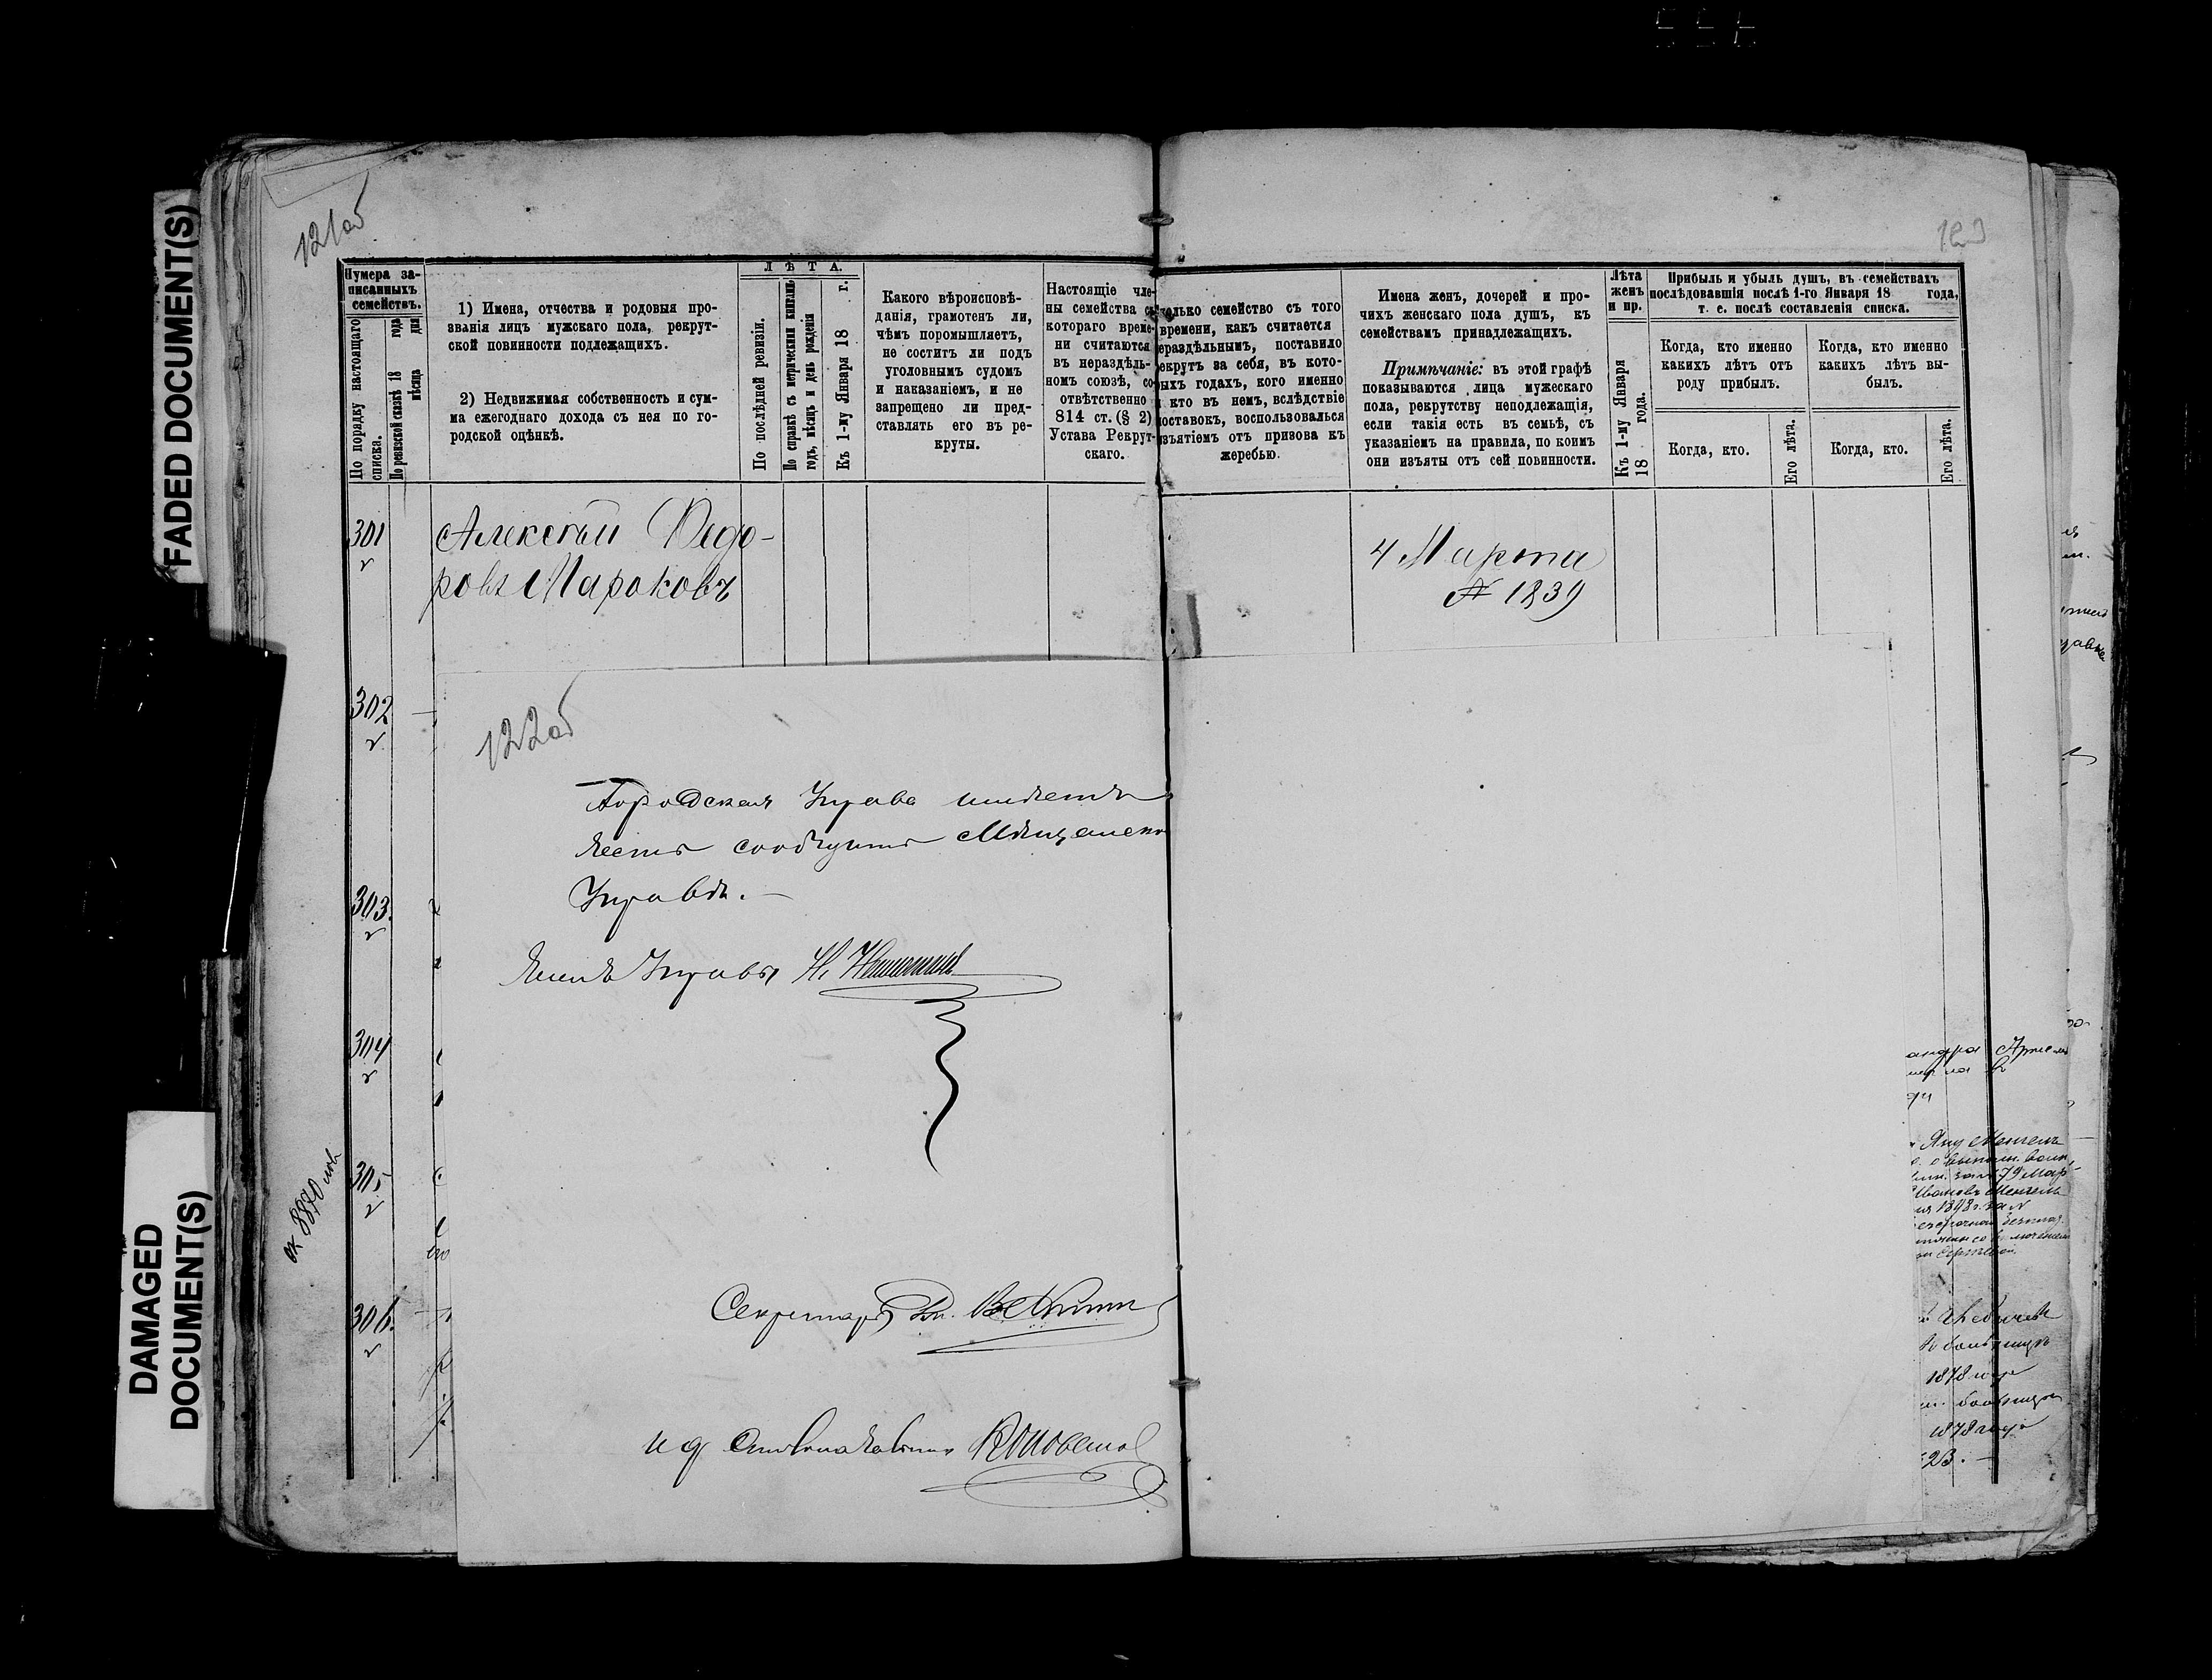 FADED DOCUMENT(S)
DAMAGED
DOCUMENT(S)
121об
123
Нумера за-
писанныхъ
семействъ.
По порядку настоящаго
списка.
По ревизской сказкѣ 18 года
мѣсяца дня
1) Имена, отчества и родовыя про-
званія лицъ мужскаго пола, рекрут-
ской повинности подлежащихъ.
2) Недвижимая собственность и сум-
ма ежегоднаго дохода съ нея по го-
родской оцѣнкѣ.
ЛѢТА.
По послѣдней ревизіи.
По справкѣ съ метрическими книгами
годъ, мѣсяцъ и день рожденія
Къ 1-му Января 18 г.
Какого вѣроисповѣ-
данія, грамотенъ ли,
чѣмъ поромышляетъ,
не соститъ ли подъ
уголовнымъ судомъ
и наказаніемъ, и не
запрещено ли пред-
ставлять его въ ре-
круты.
Настоящіе чле-
ны семейства съ
котораго време-
ни считаются
въ нераздѣль-
номъ союзѣ, со-
отвѣтственно
814 ст. (§ 2)
Устава Рекрут-
скаго.
колько семейство съ того
времени, какъ считается
ераздѣльнымъ, поставило
екрутъ за себя, въ кото-
ыхъ годахъ, кого именно
кто въ немъ, вслѣдствіе
оставокъ, воспользовалься
изъятіемъ отъ призова къ
жеребью.
Имена женъ, дочерей и про-
чихъ женскаго пола душъ, къ
семействамъ принадлежащихъ.
Примѣчаніе: въ этой графѣ
показываются лица мужескаго
пола, рекрутству неподлежащія,
если такія есть въ семьѣ, съ
указаніемъ на правила, по коимъ
они изъяты отъ сей повинности.
Лѣта
женъ
и пр.
Къ 1-му Января
18 года.
Прибыль и убыль душъ, въ семействахъ
послѣдовавшія послѣ 1-го Января 18 года,
т. е. послѣ составленія списка.
Когда, кто именно
какихъ лѣтъ отъ
роду прибылъ.
Когда, кто именно
какихъ лѣтъ вы-
былъ.
Когда, кто.
Его лѣта.
Когда, кто.
Его лѣта.
301
Алексѣй Ѳедо-
ровъ Мароковъ
4 Марта
№ 1839
302
303.
304
305
306.
122об
Городская Управа имѣетъ
честь сообщить Мѣщанско
Управѣ. —
Членъ Управы Н.
Секретарь
И д Столоначальника
1878
1878 года
23. —